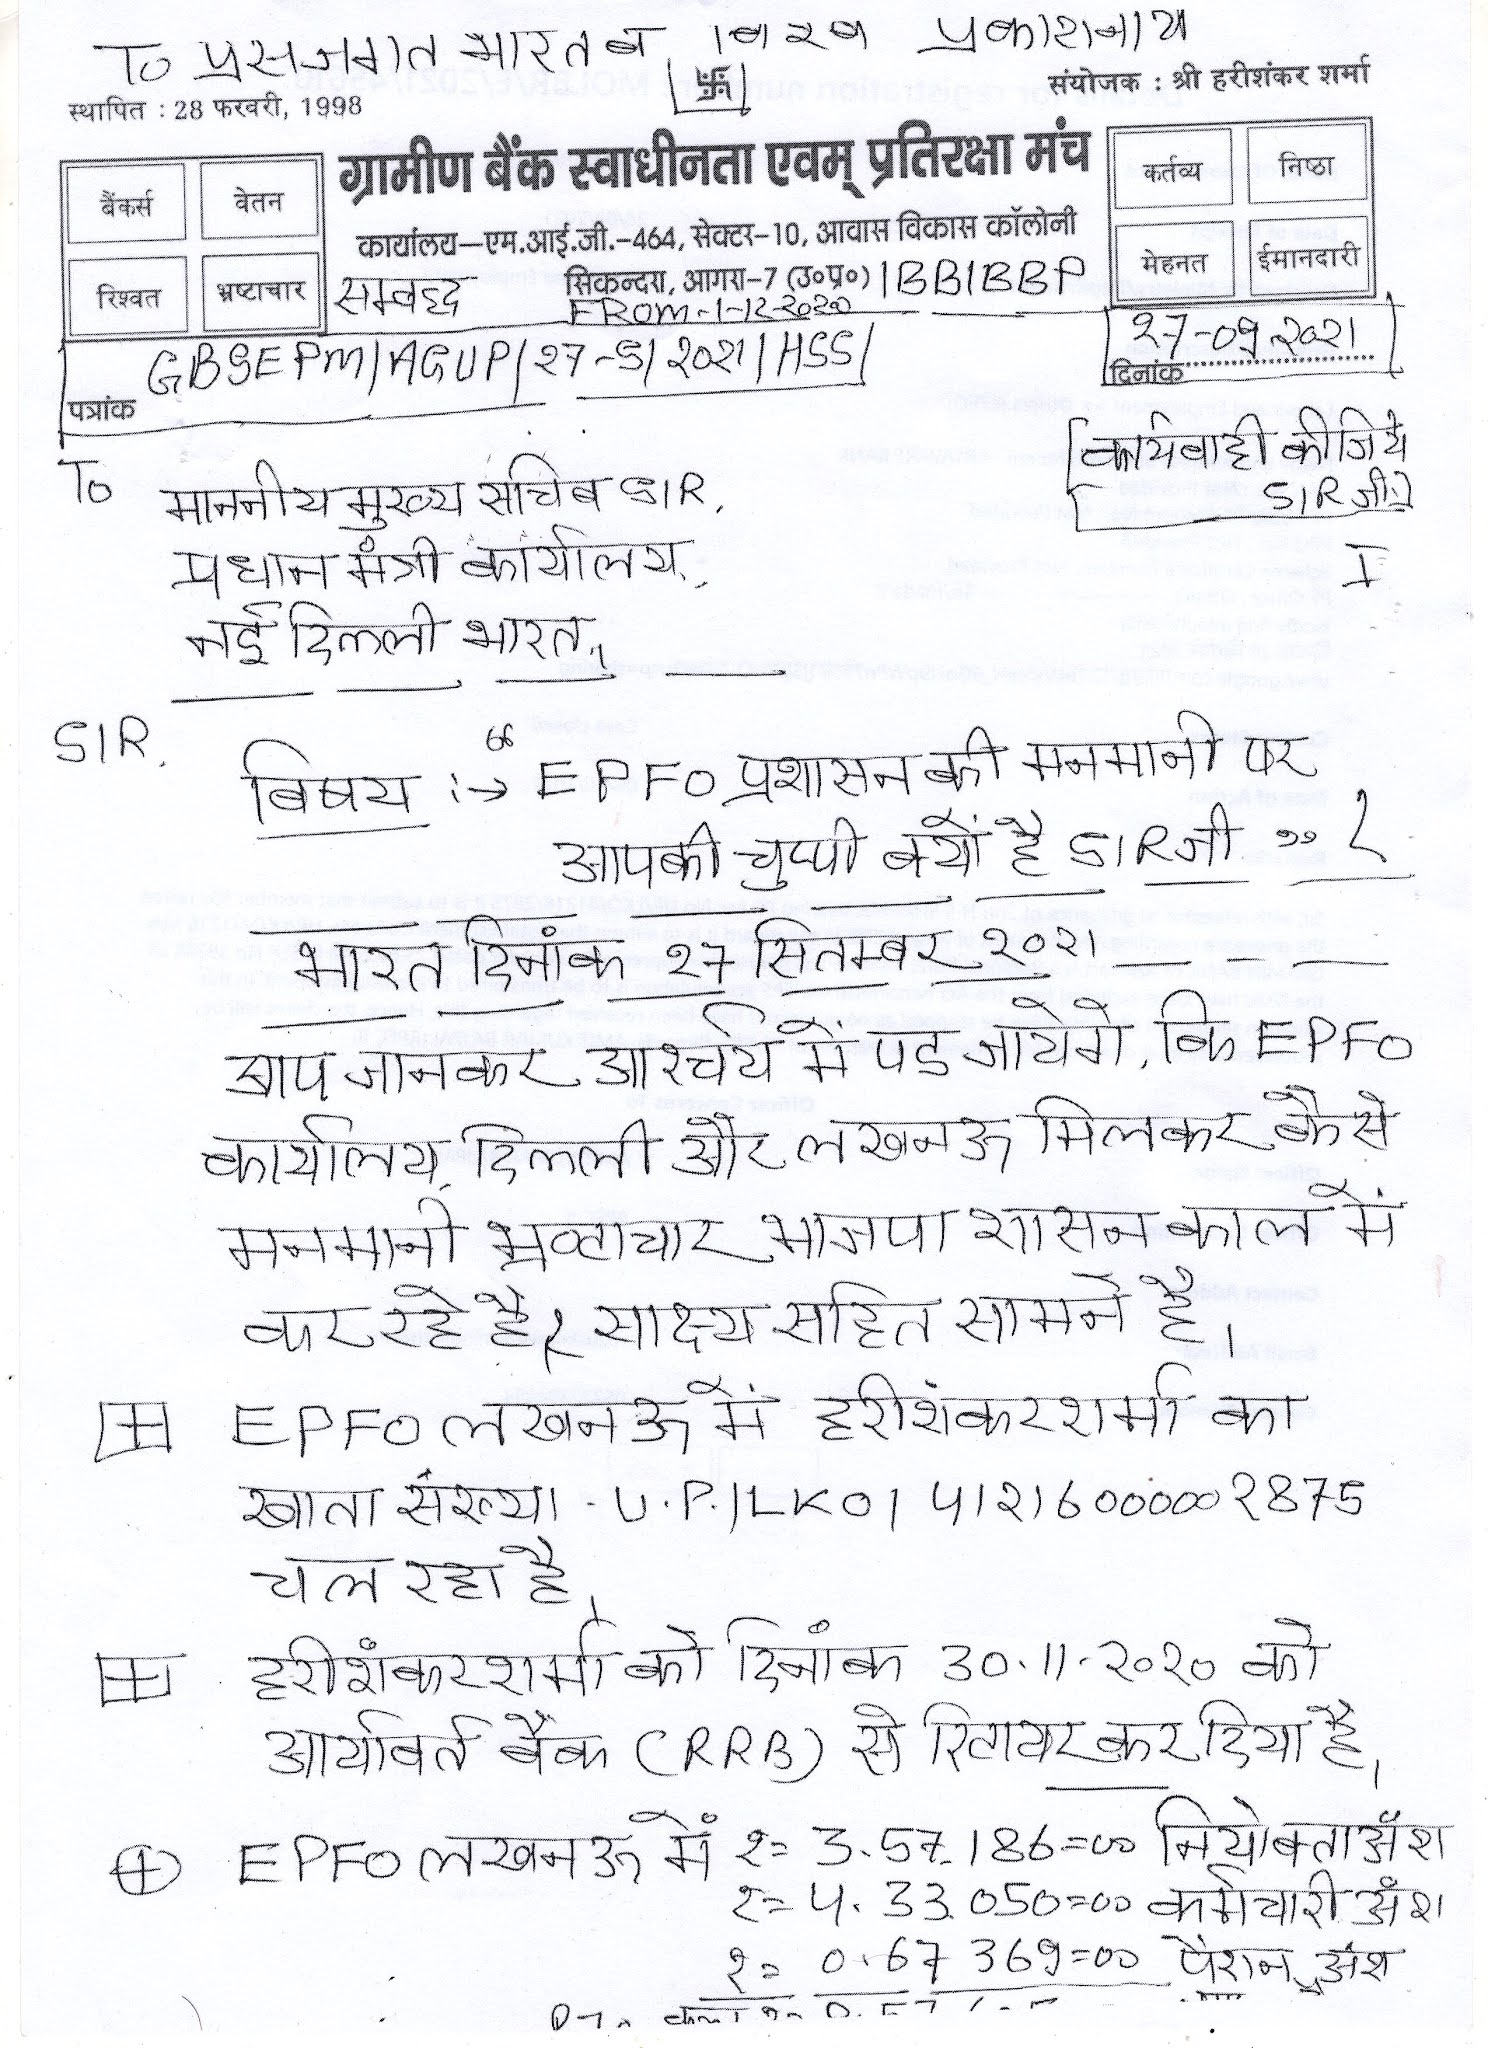 To प्रसजगत भारत व विश्व प्रकाशनाथ
卐
संयोजक : श्री हरीशंकर शर्मा
स्थापित : 28 फरवरी, 1998
ग्रामीण बैंक स्वाधीनता एवम् प्रतिरक्षा मंच
बैंकर्स वेतन
रिश्वत भ्रष्टाचार
कर्तव्य निष्ठा
मेहनत ईमानदारी
कार्यालय–एम.आई.जी.–464, सेक्टर–10, आवास विकास कॉलोनी
सिकन्दरा, आगरा–7 (उ०प्र०)
सम्बद्ध IBBIBBP
FROM-1-12-2020
पत्रांक GBSEPM/AGUP/27-S/2021/HSS/
दिनांक 27-09-2021
[कार्यवाही कीजिये
SIR जी:]
To
माननीय मुख्य सचिव SIR.
प्रधान मंत्री कार्यालय.
नई दिल्ली भारत।
I
SIR.
विषय :→ “EPFO प्रशासन की मनमानी पर
आपकी चुप्पी क्यों है SIR जी ”?
भारत दिनांक 27 सितम्बर 2021 — – —
आप जानकर आश्चर्य में पड जायेगे, कि EPFO
कार्यालय, दिल्ली और लखनऊ मिलकर कैसे
मनमानी भ्रष्टाचार भाजपा शासन काल में
कर रहे है? साक्ष्य सहित सामने है।
EPFO लखनऊ में हरीशंकर शर्मा का
खाता संख्या - U.P./LKO/41216000002875
चल रहा है।
हरीशंकर शर्मा को दिनांक 30.11.2020 को
आर्यावर्त बैंक (RRB) से रिटायर कर दिया है।
EPFO लखनऊ में रु= 3.57.186=00 नियोक्ता अँश
रु= 4.33.050=00 कर्मचारी अँश
रु= 0.67 369=00 पेंशन अंश